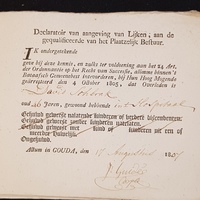 Declaratoir van aangeving van Lijken, aan de
gequalificeerde van het Plaatzelijk Bestuur.
IK ondergetekende
geve bij deze kennis, en zulks ter voldoening aan het 24 art.
der Ordonnantie op het Recht van Successie, alömme binnen 't
Bataafsch Gemeenebest intevoeren, bij Hun Hoog Mogende
gearresteerd den 4 October 1805, dat Overleden is
David
oud 46 Jaren, gewoond hebbende
Gehuwd geweest nalatende kinderen of verderè bijzonderheid
Gehuwd geweest zonder kinderen natelaten.
Gehuwd geweest met kind of kinderen uit een of
meerder
Ongehuwd.
Actum in GOUDA, den 17 Augustus 1807